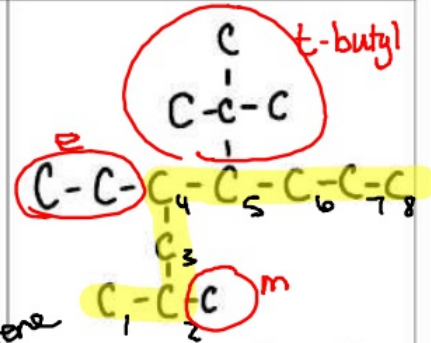 C
t-butyl
C-C-C
E
C-C-C-C-C-C-C
4 5 6 7 8
C
3
C-C-C
m
1 2
ene